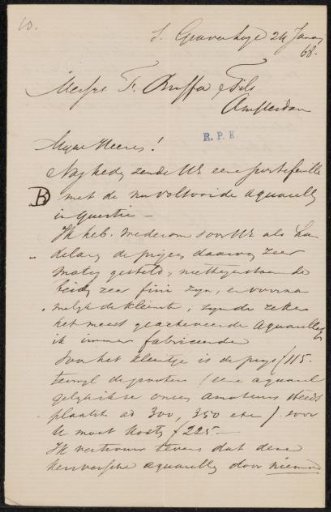 10.
s. Gravenhage 24 Jany
68.
Messrs F. Buffa & Fils
Amsterdam
R.P.K
Myne Heeren!
Nog heden zende U eene portefeuille
B met de nu voltooide aquarelle
in questie -
Ik heb wederom voor U als han
delaars de pryzen daarvan zeer
matig gesteld, niettegenstaande
beiden zeer fini zyn, en voorna
melyk de kleinste, zynde zeker
het meest geacheveerde aquarelle
ik immer fabriceerde
Voor het kleintje is de prys f 115
terwyl de grootere (een aquarel
gelyk ik onze amateurs steeds
plaatste ad 300, 350 etc) voor
U moet kosten f 225 -
Ik vertrouw tevens dat deze
aquarelle door niemand